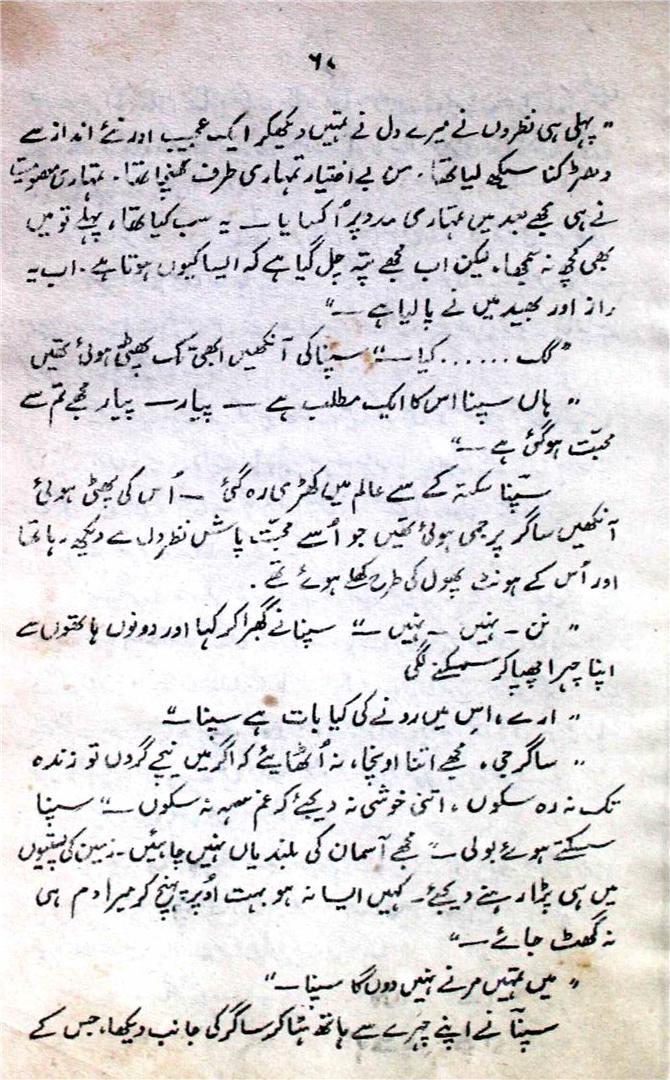 ۶۸
" پہلی ہی نظروں نے میرے دل نے تمہیں دیکھکر ایک عجیب اور نئے انداز سے
دھڑکنا سیکھ لیا تھا۔ من بے اختیار تمہاری طرف کھنچا تھا۔ تمہاری معصومیت
نے ہی مجھے بعد میں تمہاری مدد پر اُکسایا ـــ یہ سب کیا تھا، پہلے تو میں
بھی کچھ نہ سمجھا، لیکن اب مجھے پتہ چل گیا ہے کہ ایسا کیوں ہوتا ہے۔ اب یہ
راز اور بھید میں نے پا لیا ہے ــــ"
" گک ...... کیا ـــ" سپنا کی آنکھیں ابھی تک پھٹی ہوئی تھیں
" ہاں سپنا اس کا ایک مطلب ہے ـــ پیار ـــ پیار مجھے تم سے
محبّت ہو گئی ہے ـــ"
سپنا سکتہ کے سے عالم میں کھڑی رہ گئی ـ اُس کی پھٹی ہوئی
آنکھیں ساگر پر جمی ہوئی تھیں جو اُسے محبّت پاش نظروں سے دیکھ رہا تھا
اور اُس کے ہونٹ پھول کی طرح کھلے ہوئے تھے ۔
" نن ـ نہیں ـ نہیں ـــ" سپنا نے گھبرا کر کہا اور دونوں ہاتھوں سے
اپنا چہرا چھپا کر سسکنے لگی
" ارے، اس میں رونے کی کیا بات ہے سپنا ـــ"
" ساگر جی، مجھے اتنا اونچا، نہ اُٹھایئے کہ اگر میں نیچے گروں تو زندہ
تک نہ رہ سکوں، اتنی خوشی نہ دیجئے کہ غم سہہ نہ سکوں ـــ" سپنا
سسکتے ہوئے بولی ـــ" مجھے آسمان کی بلندیاں نہیں چاہئیں ـ زمین کی پستیوں
میں ہی پڑا رہنے دیجئے ـ کہیں ایسا نہ ہو بہت اُوپر پہنچ کر میرا دم ہی
نہ گھٹ جائے ـــ"
" میں تمہیں مرنے نہیں دوں گا سپنا ـــ"
سپنا نے اپنے چہرے سے ہاتھ ہٹا کر ساگر کی جانب دیکھا، جس کے